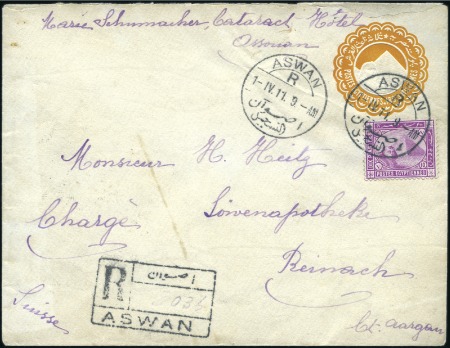 Marie Schumacher, Cataract Hôtel
Assouan
ASWAN
R
1-IV.11.9-AM
أصوان
المسجل
ASWAN
R
POSTES EGYPTIENNES
Monsieur H. Heitz
Chargé
Löwenapotheke
Reinach
R
أصوان
ASWAN
Suisse
Ct. Aargau